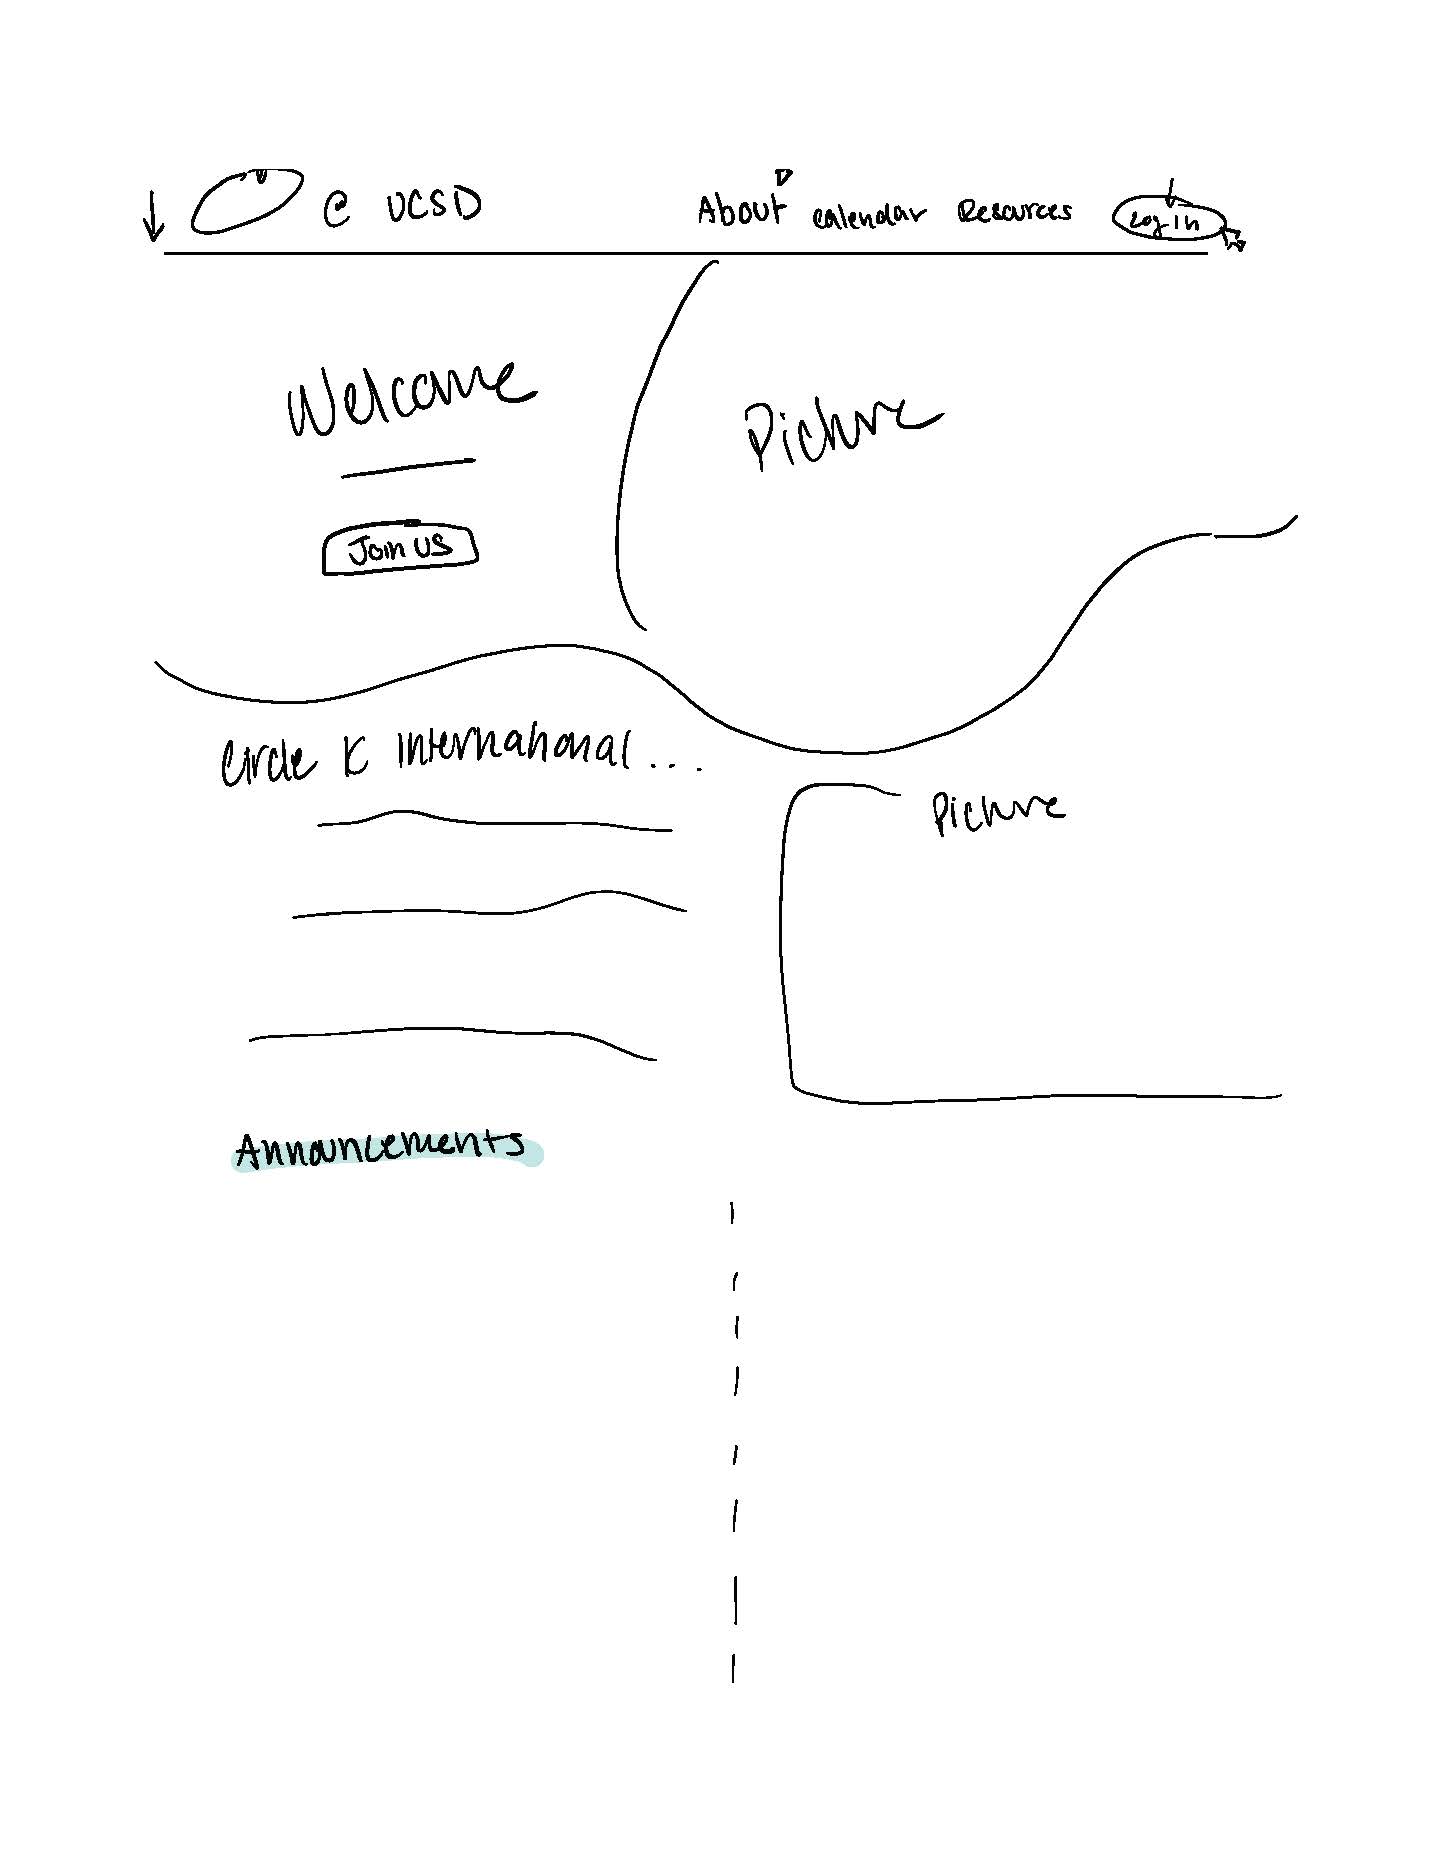 @ UCSD
About calendar Resources Log in
Welcome
Picture
Join US
Circle K International...
Picture
Announcements